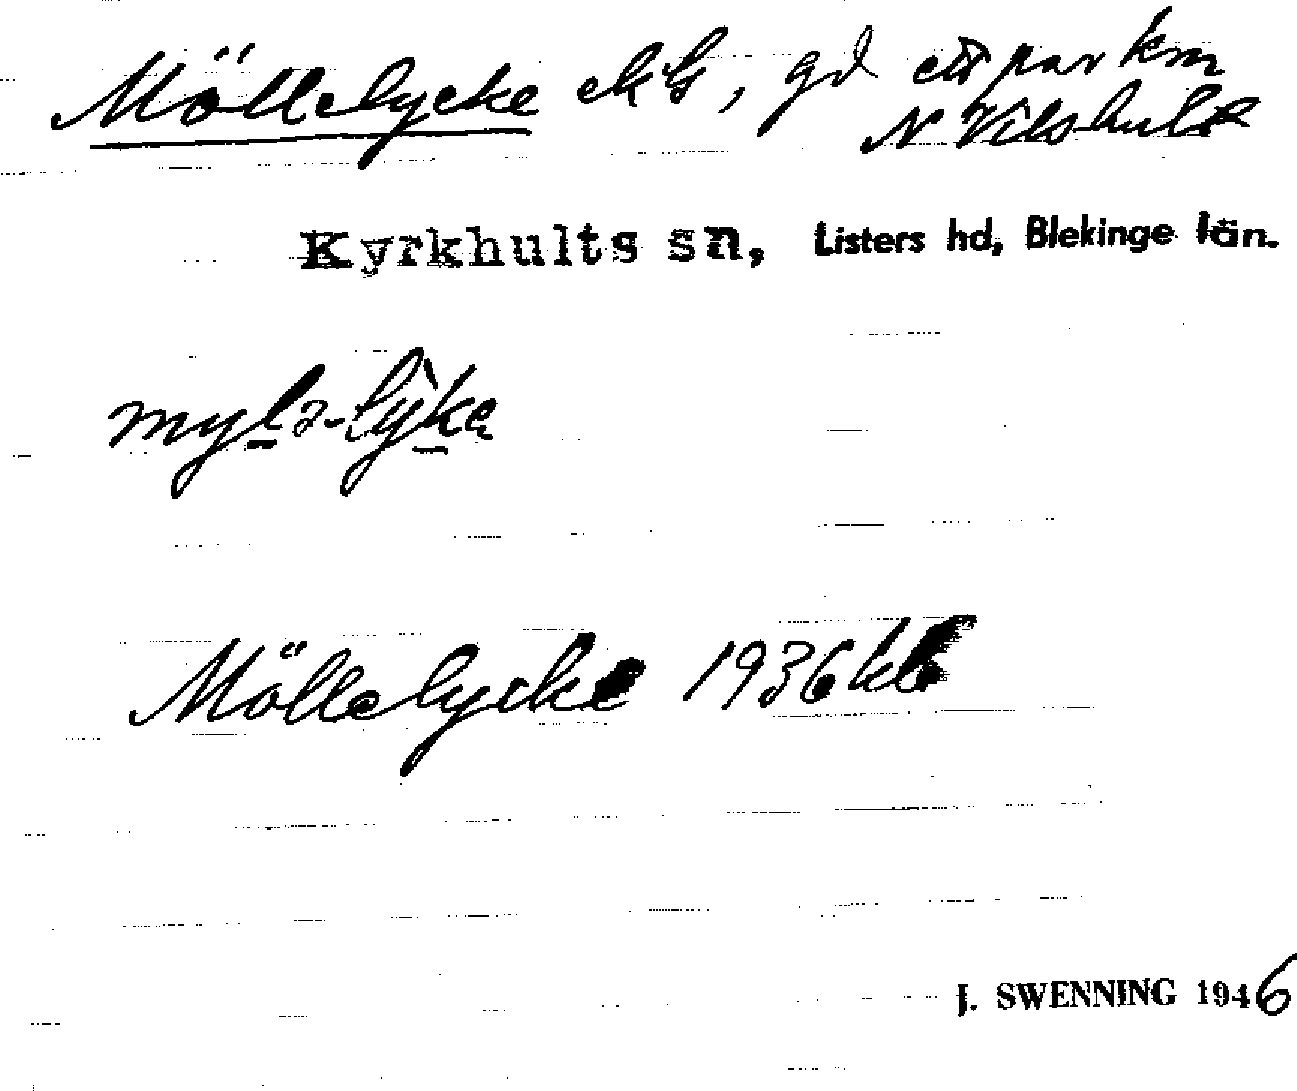 Möllelycke ekG, gd ett par km
N Vilshult
Kyrkhults sn, Listers hd, Blekinge län.
Möllelycke 1936 kb
J. SWENNING 1946